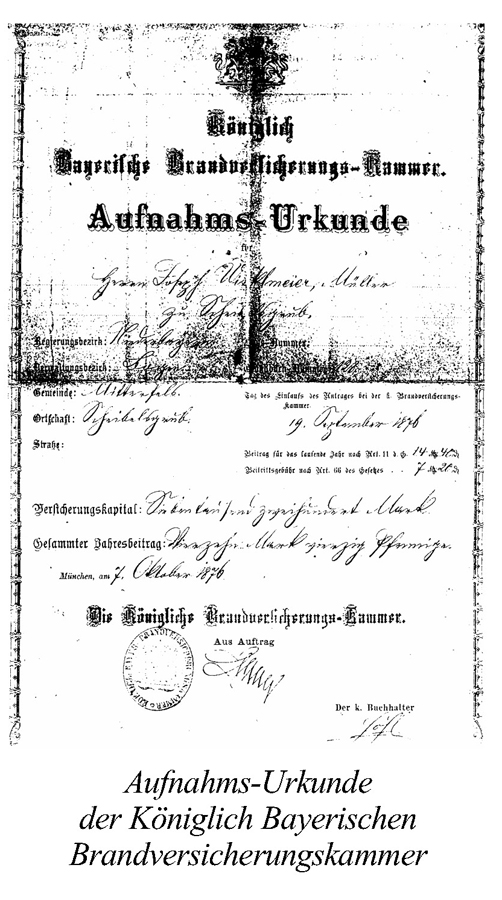 Königlich
Bayerische Brandversicherungs-Kammer.
Aufnahms-Urkunde
für
Herrn Joseph Müller
zu
Regierungsbezirk: Niederbayern
Verwaltungsbezirk:
Gemeinde: Mitterfels.
Tag des Einlaufs des Antrages bei der k. Brandversicherungs-
Kammer
Ortschaft: Scheibelsgrub.
19. September 1876
Straße:
Beitrag für das laufende Jahr nach Art. 11 d. G. 14 M 40
Beitrittsgebühr nach Art. 66 des Gesetzes . . 7 M 20
Versicherungskapital: Siebentausend zweihundert Mark
Gesammter Jahresbeitrag: Vierzehn Mark vierzig Pfennige.
München, am 7. Oktober 1876
Die Königliche Brandversicherungs-Kammer.
Aus Auftrag
Der k. Buchhalter
Aufnahms-Urkunde
der Königlich Bayerischen
Brandversicherungskammer